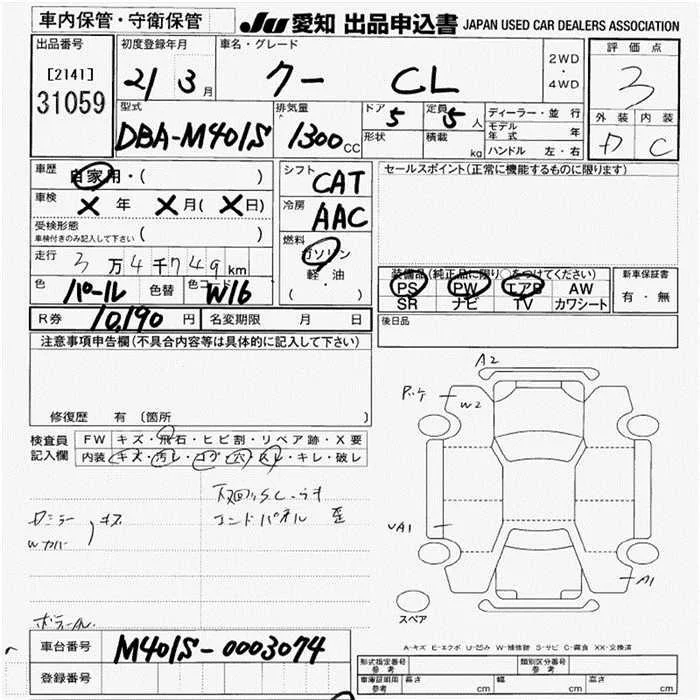 車内保管・守衛保管
JU 愛知 出品申込書 JAPAN USED CAR DEALERS ASSOCIATION
出品番号
[2141]
31059
初度登録年月
21 3月
車名・グレード
クー CL
2WD
・
4WD
評価点
3
外装 内装
D C
型式
DBA-M401S
排気量
1300cc
ドア 5
定員 5人
形状
積載 kg
ディーラー・並行
モデル年式 年
ハンドル 左・右
車歴
自家用・( )
車検
X 年 X月(X日)
受検形態
車検付きのみ記入して下さい ( )
走行
3万4千749km
色 パール 色替 色コード W16
シフト
CAT
冷房
AAC
燃料
ガソリン
軽・油
( )
セールスポイント(正常に機能するものに限ります)
装備品(純正品に限り○をつけてください)
PS PW エアB AW
SR ナビ TV カワシート
新車保証書
有・無
R券 10,190 円 名変期限 月 日
後日品
注意事項申告欄(不具合内容等は具体的に記入して下さい)
修復歴 有 〔箇所 〕
検査員
記入欄
FW キズ・飛石・ヒビ割・リペア跡・X要
内装 キズ・汚レ・コゲ・穴・スレ・キレ・破レ
コンドパネル
Dミラー キズ
Wカバー
A2
W2
A1
A1
スペア
A-キズ E-エクボ U-凹み W-補修跡 S-サビ C-腐食 XX-交換済
車台番号 M401S-0003074
登録番号
形式指定番号
参考
類別区分番号
参考
車庫証明用
参考
長さ cm 幅 cm 高さ cm